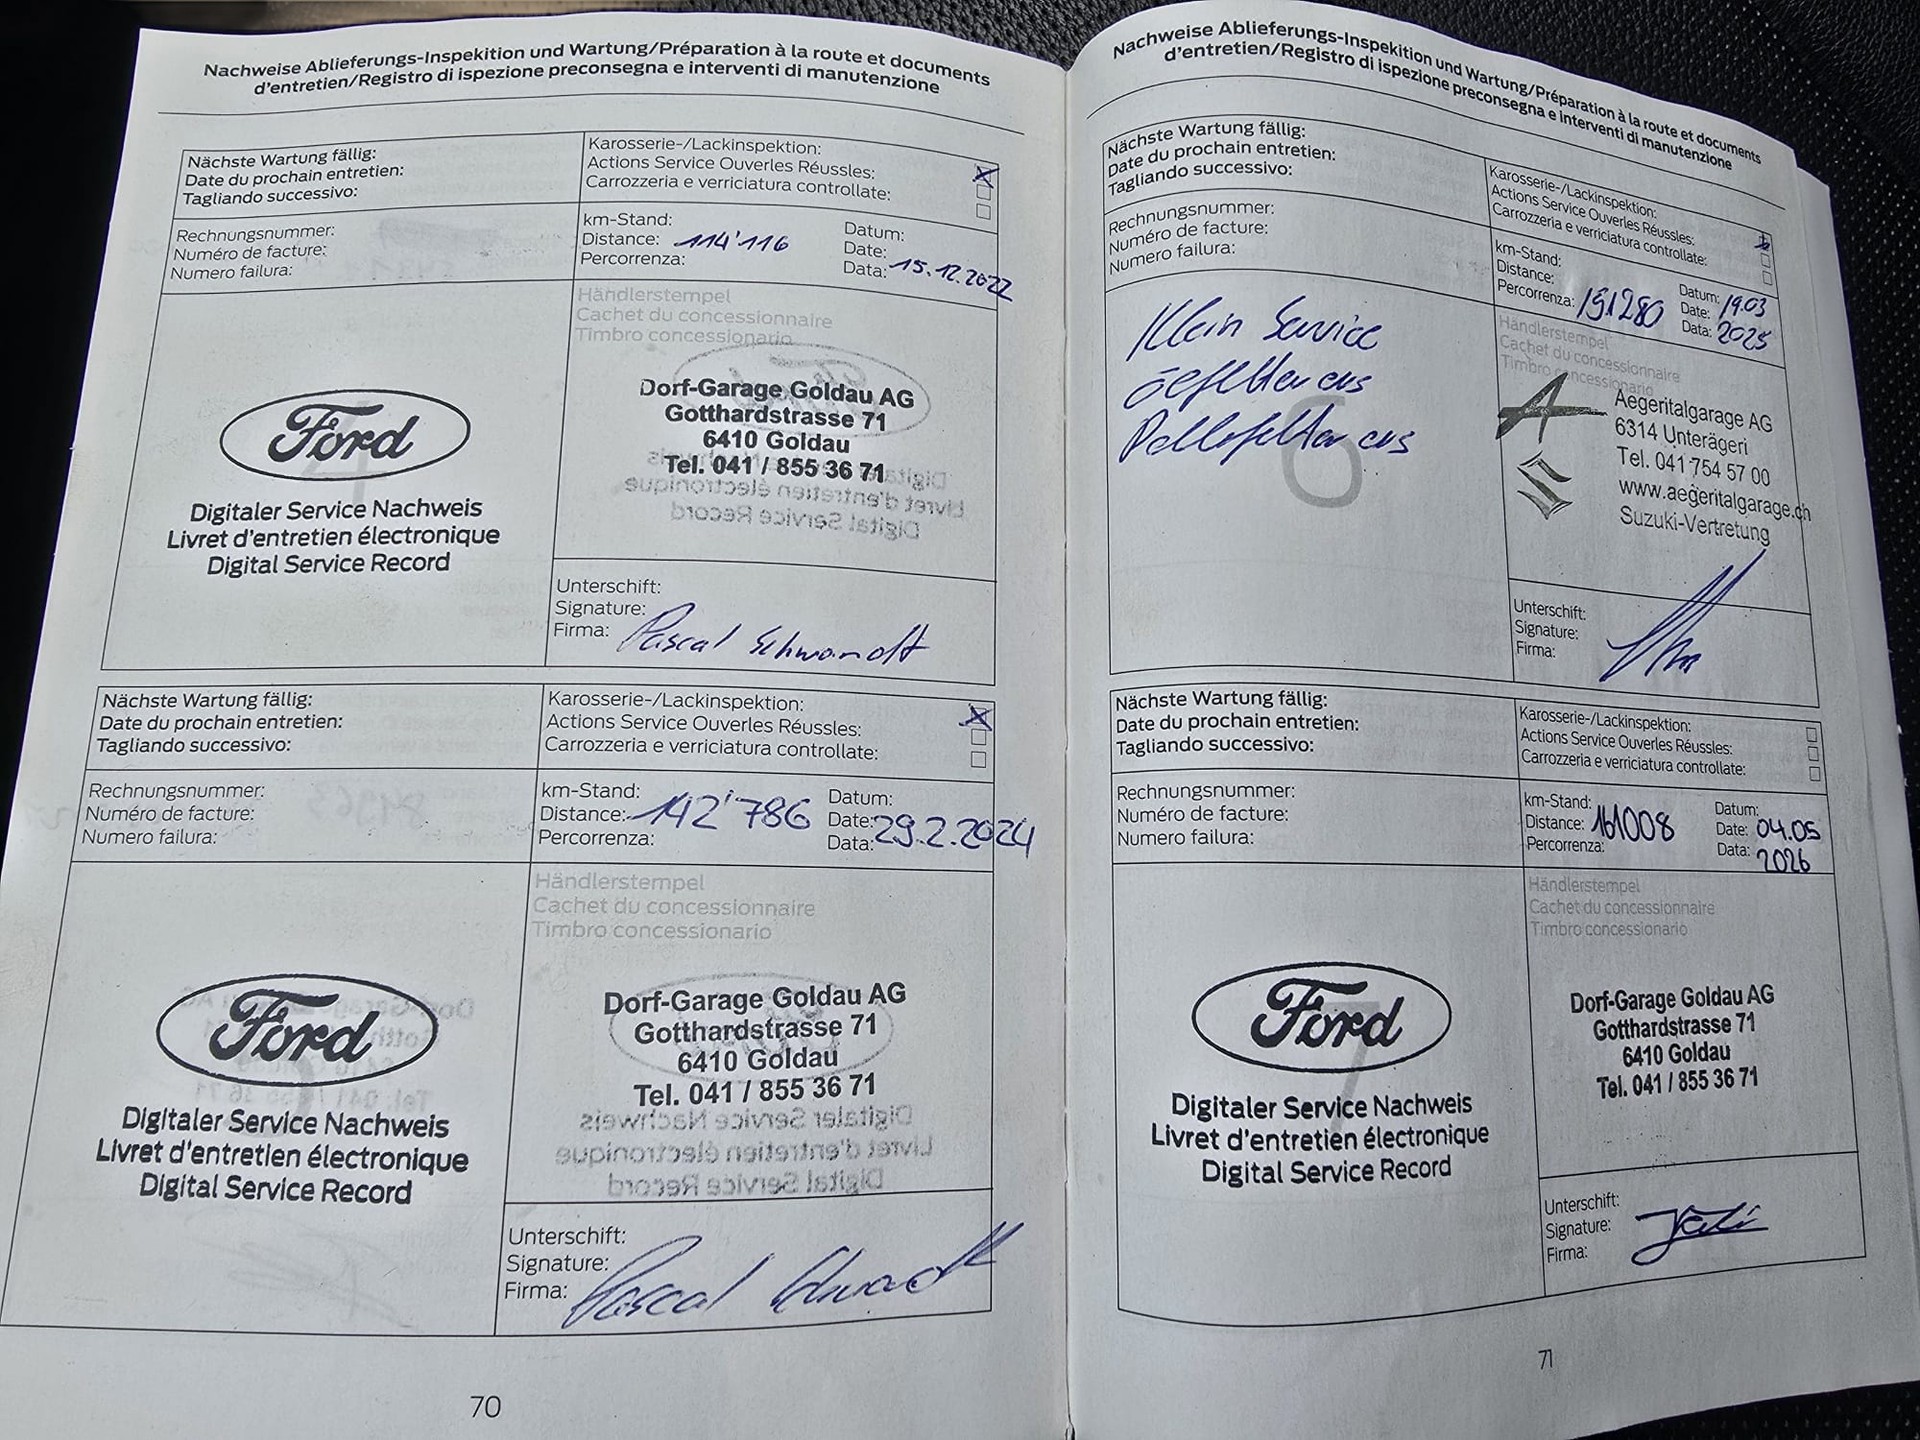 Nachweise Ablieferungs-Inspekition und Wartung/Préparation à la route et documents
d'entretien/Registro di ispezione preconsegna e interventi di manutenzione
Nächste Wartung fällig:
Date du prochain entretien:
Tagliando successivo:
Karosserie-/Lackinspektion:
Actions Service Ouverles Réussles:
Carrozzeria e verriciatura controllate:
Rechnungsnummer:
Numéro de facture:
Numero failura:
km-Stand:
Distance: 114'116
Percorrenza:
Datum:
Date:
Data: 15.12.2022
Ford
Digitaler Service Nachweis
Livret d'entretien électronique
Digital Service Record
Händlerstempel
Cachet du concessionnaire
Timbro concessionario
Dorf-Garage Goldau AG
Gotthardstrasse 71
6410 Goldau
Tel. 041 / 855 36 71
Unterschift:
Signature:
Firma: Pascal Schwandt
Nächste Wartung fällig:
Date du prochain entretien:
Tagliando successivo:
Karosserie-/Lackinspektion:
Actions Service Ouverles Réussles:
Carrozzeria e verriciatura controllate:
Rechnungsnummer:
Numéro de facture:
Numero failura:
km-Stand:
Distance: 142'786
Percorrenza:
Datum:
Date: 29.2.2024
Data:
Ford
Digitaler Service Nachweis
Livret d'entretien électronique
Digital Service Record
Händlerstempel
Cachet du concessionnaire
Timbro concessionario
Dorf-Garage Goldau AG
Gotthardstrasse 71
6410 Goldau
Tel. 041 / 855 36 71
Unterschift:
Signature:
Firma: Pascal Schwandt
70
Nachweise Ablieferungs-Inspekition und Wartung/Préparation à la route et documents
d'entretien/Registro di ispezione preconsegna e interventi di manutenzione
Nächste Wartung fällig:
Date du prochain entretien:
Tagliando successivo:
Karosserie-/Lackinspektion:
Actions Service Ouverles Réussles:
Carrozzeria e verriciatura controllate:
Rechnungsnummer:
Numéro de facture:
Numero failura:
km-Stand:
Distance:
Percorrenza: 151280
Datum: 19.03
Date:
Data: 2025
Klein Service
Oelfilter aus
Pollefilter aus
6
Händlerstempel
Cachet du concessionnaire
Timbro concessionario
Aegeritalgarage AG
6314 Unterägeri
Tel. 041 754 57 00
www.aegeritalgarage.ch
Suzuki-Vertretung
Unterschift:
Signature:
Firma:
Nächste Wartung fällig:
Date du prochain entretien:
Tagliando successivo:
Karosserie-/Lackinspektion:
Actions Service Ouverles Réussles:
Carrozzeria e verriciatura controllate:
Rechnungsnummer:
Numéro de facture:
Numero failura:
km-Stand:
Distance: 161008
Percorrenza:
Datum:
Date: 04.05
Data: 2026
7
Ford
Digitaler Service Nachweis
Livret d'entretien électronique
Digital Service Record
Händlerstempel
Cachet du concessionnaire
Timbro concessionario
Dorf-Garage Goldau AG
Gotthardstrasse 71
6410 Goldau
Tel. 041 / 855 36 71
Unterschift:
Signature:
Firma:
71